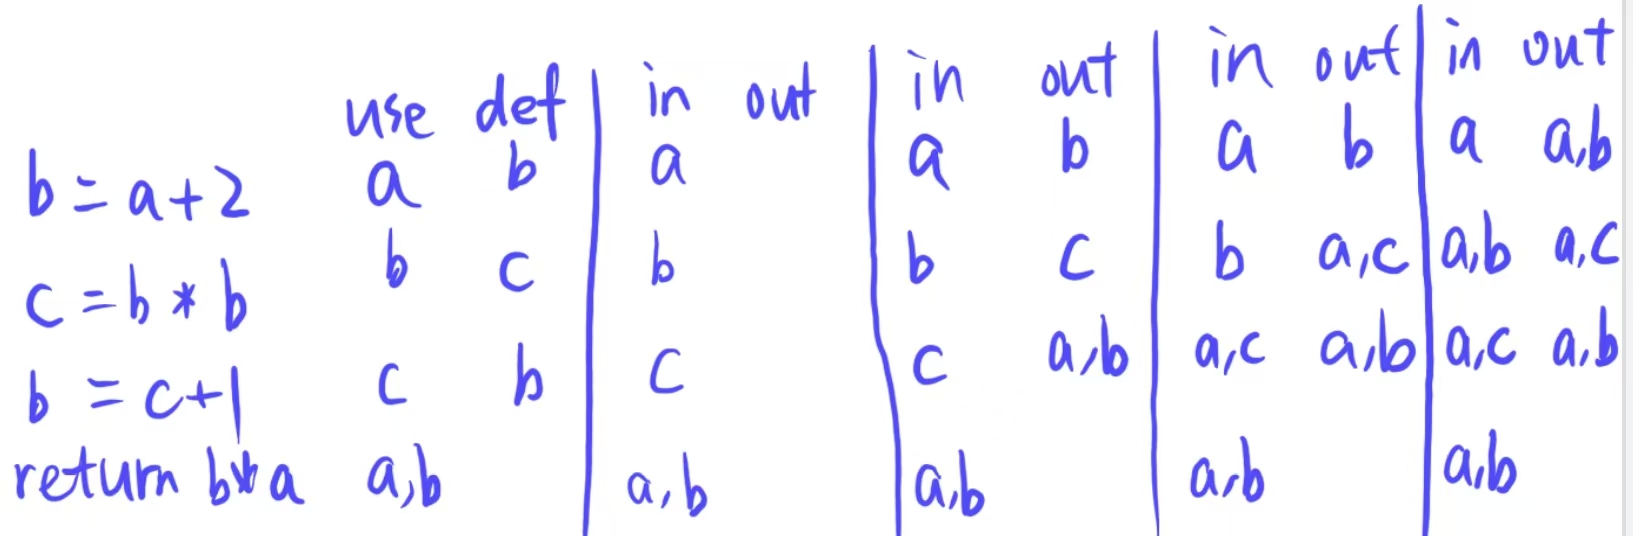 use def in out in out in out in out
b = a+2 a b a a b a b a a,b
c = b * b b c b b c b a,c a,b a,c
b = c+1 c b c c a,b a,c a,b a,c a,b
return b*a a,b a,b a,b a,b a,b